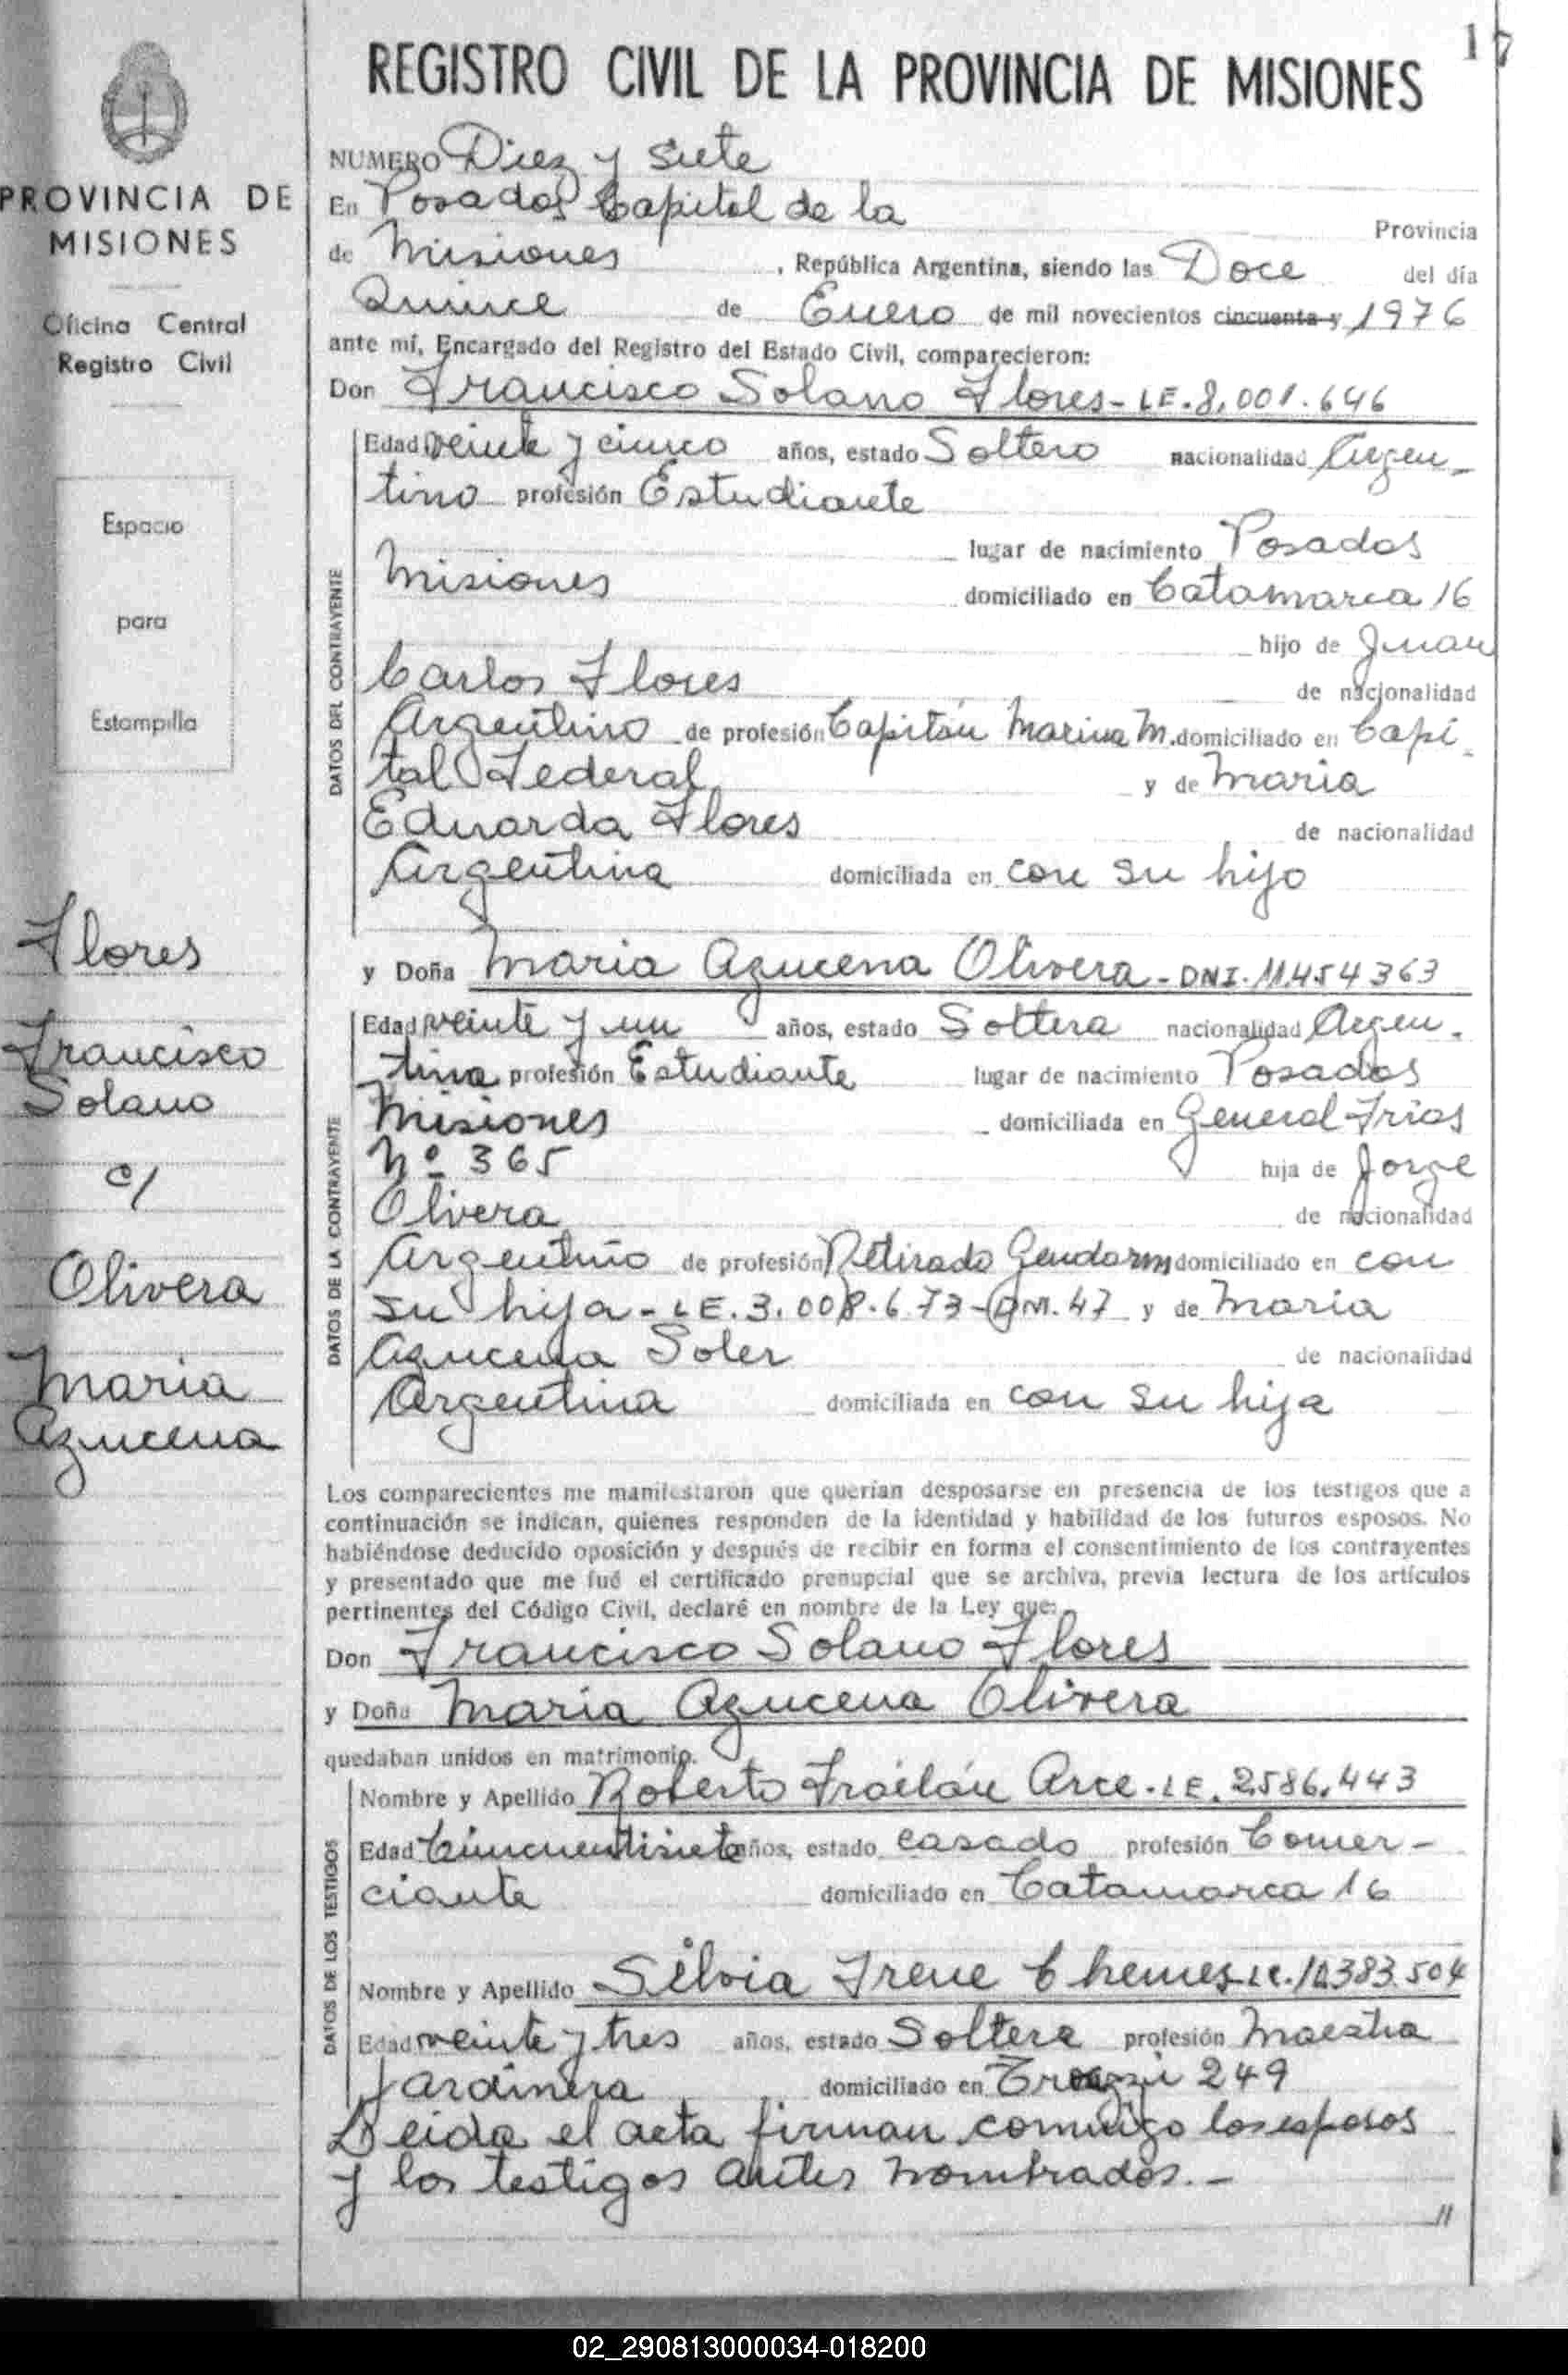 17
REGISTRO CIVIL DE LA PROVINCIA DE MISIONES
NUMERO Diez y siete
En Posadas Capital de la Provincia
de Misiones, República Argentina, siendo las Doce del día
Quince de Enero de mil novecientos cincuenta y 1976
ante mí, Encargado del Registro del Estado Civil, comparecieron:
Don Francisco Solano Flores - LE. 8.001.646
DATOS DEL CONTRAYENTE
Edad veinte y cinco años, estado Soltero nacionalidad Argen-
tino profesión Estudiante
lugar de nacimiento Posadas
Misiones domiciliado en Catamarca 16
hijo de Juan
Carlos Flores de nacionalidad
Argentino de profesión Capitán Marina M. domiciliado en Capi-
tal Federal y de Maria
Eduarda Flores de nacionalidad
Argentina domiciliada en con su hijo
y Doña Maria Azucena Olivera - DNI. 11.454363
DATOS DE LA CONTRAYENTE
Edad veinte y un años, estado Soltera nacionalidad Argen-
tina profesión Estudiante lugar de nacimiento Posadas
Misiones domiciliada en General Frias
Nº 365 hija de Jorge
Olivera de nacionalidad
Argentino de profesión Retirado Gendarm domiciliado en con
su hija - LE. 3.008.673 - DM. 47 y de Maria
Azucena Soler de nacionalidad
Argentina domiciliada en con su hija
Los comparecientes me manifestaron que querían desposarse en presencia de los testigos que a
continuación se indican, quienes responden de la identidad y habilidad de los futuros esposos. No
habiéndose deducido oposición y después de recibir en forma el consentimiento de los contrayentes
y presentado que me fué el certificado prenupcial que se archiva, previa lectura de los artículos
pertinentes del Código Civil, declaré en nombre de la Ley que:
Don Francisco Solano Flores
y Doña Maria Azucena Olivera
quedaban unidos en matrimonio.
DATOS DE LOS TESTIGOS
Nombre y Apellido Roberto Froilán Arce - LE. 2586.443
Edad Cincuentisiete años, estado casado profesión Comer-
ciante domiciliado en Catamarca 16
Nombre y Apellido Silvia Irene Chemes LC. 10.383.504
Edad veinte y tres años, estado Soltera profesión Maestra
Jardinera domiciliado en 249
Leida el acta firman conmigo los esposos
y los testigos antes nombrados. -
//
PROVINCIA DE
MISIONES
Oficina Central
Registro Civil
Espacio
para
Estampilla
Flores
Francisco
Solano
c/
Olivera
Maria
Azucena
02_290813000034-018200